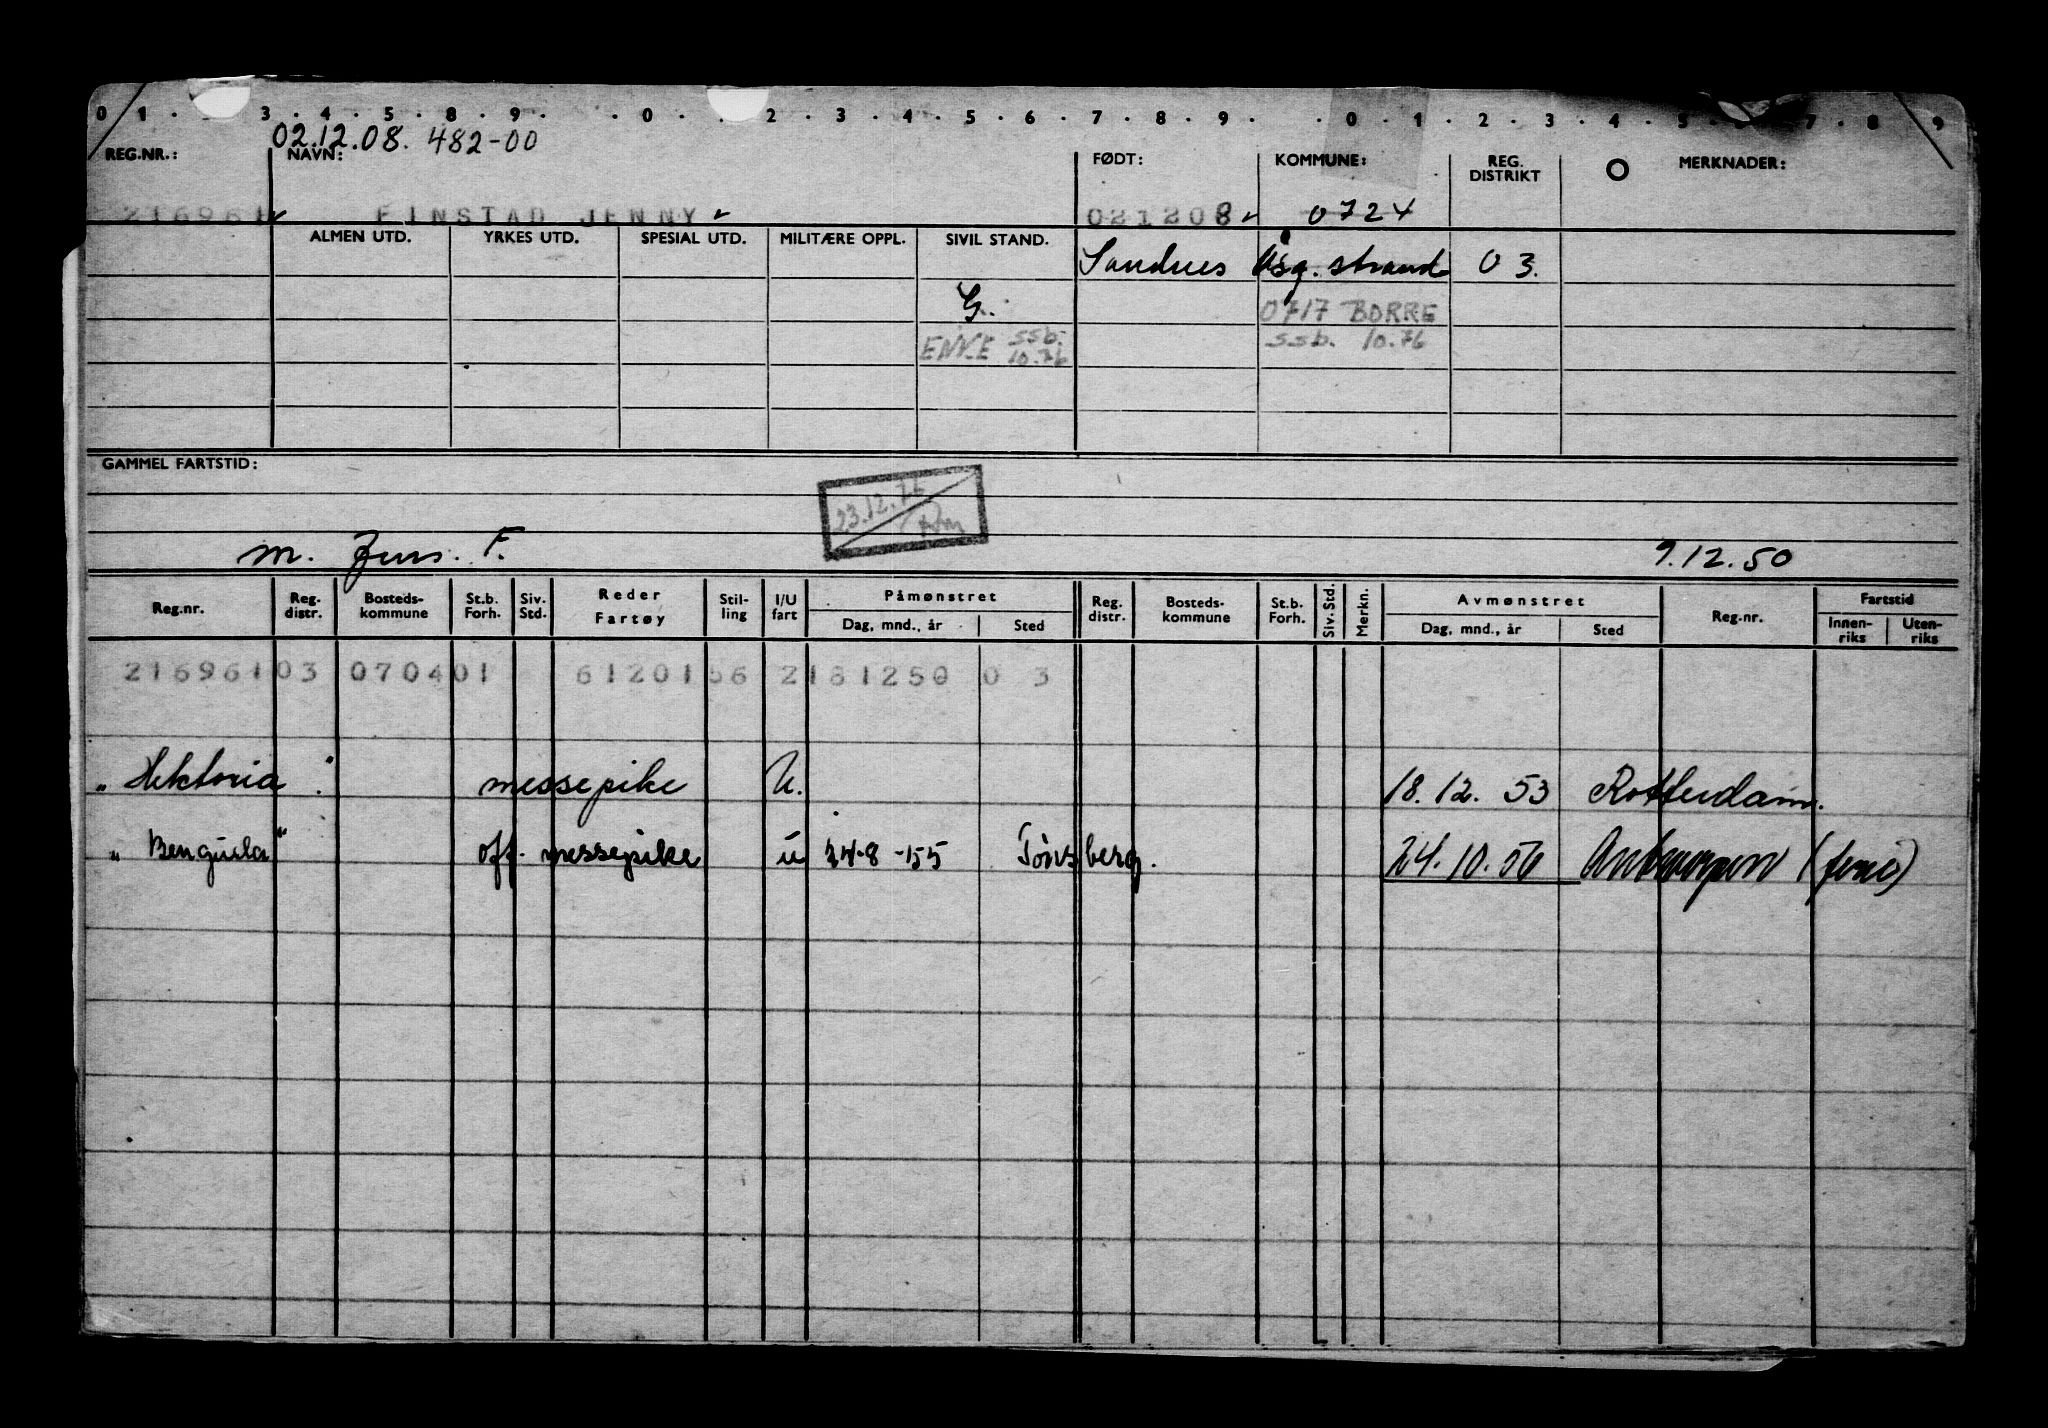 0 1 . 3 . 4 . 5 . 8 . 9 . . 0 . . 2 . 3 . 4 . 5 . 6 . 7 . 8 . 9 . . 0 . 1 . 2 . 3 . 4 . 5 . 6 . 7 . 8 . 9
02.12.08. 482-00
REG.NR.: NAVN: FØDT: KOMMUNE: REG. DISTRIKT O MERKNADER:
216961 FINSTAD JENNY 021208 0724
ALMEN UTD. YRKES UTD. SPESIAL UTD. MILITÆRE OPPL. SIVIL STAND. Sandnes Åsg. strand 03.
G. 0717 BORRE
ENKE ssb. 10.76 ssb. 10.76
GAMMEL FARTSTID:
23.12.76
m. Jens. F. 9.12.50
Reg.nr. Reg. distr. Bosteds-kommune St.b. Forh. Siv. Std. Reder Fartøy Stil-ling I/U fart Påmønstret Dag, mnd., år Sted Reg. distr. Bosteds-kommune St.b. Forh. Siv. Std. Merkn. Avmønstret Dag, mnd., år Sted Reg.nr. Fartstid Innen-riks Uten-riks
216961 03 0704 01 61201 56 2 181250 0 3
"Hektoria" messepike U. 18.12.53 Rotterdam.
"Benguela" off. messepike u 24-8-55 Tønsberg. 24.10.56 Antwerpen (ferie)